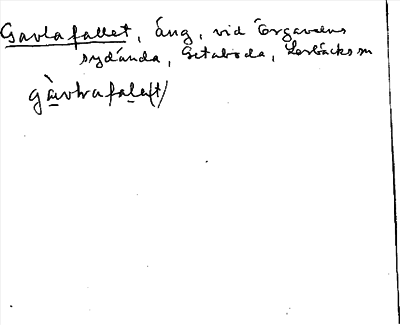 Gavlafallet, äng, vid Örgavelns
sydända, Getaboda, Lerbäcks sn
gàvlrafalet/